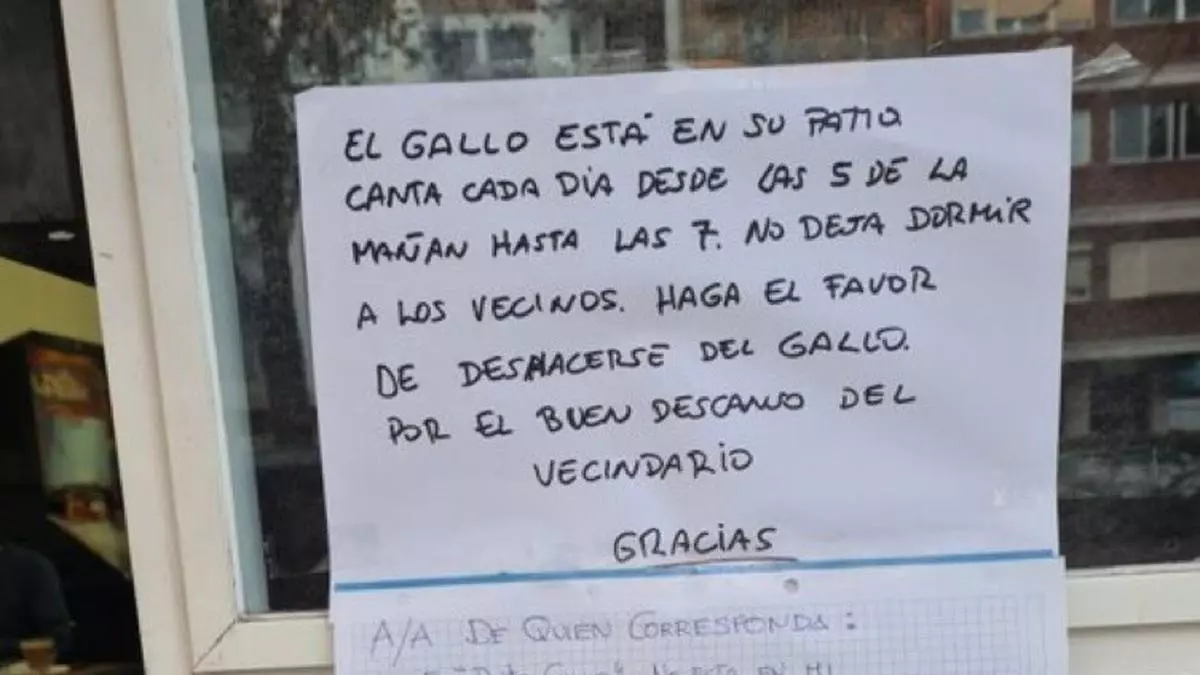 EL GALLO ESTÁ EN SU PATIO
CANTA CADA DÍA DESDE LAS 5 DE LA
MAÑAN HASTA LAS 7. NO DEJA DORMIR
A LOS VECINOS. HAGA EL FAVOR
DE DESHACERSE DEL GALLO.
POR EL BUEN DESCANSO DEL
VECINDARIO
GRACIAS
A/A DE QUIEN CORRESPONDA:
NO ESTA EN MI